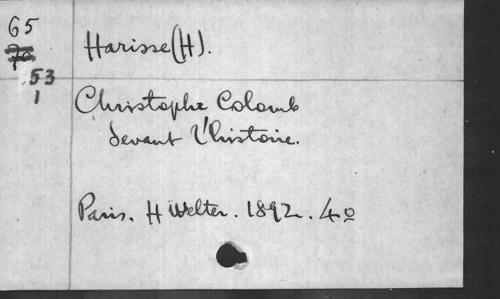 65
70
53
1
Harisse (H).
Christophe Colomb
devant l'histoire.
Paris. H Welter. 1892. 4º